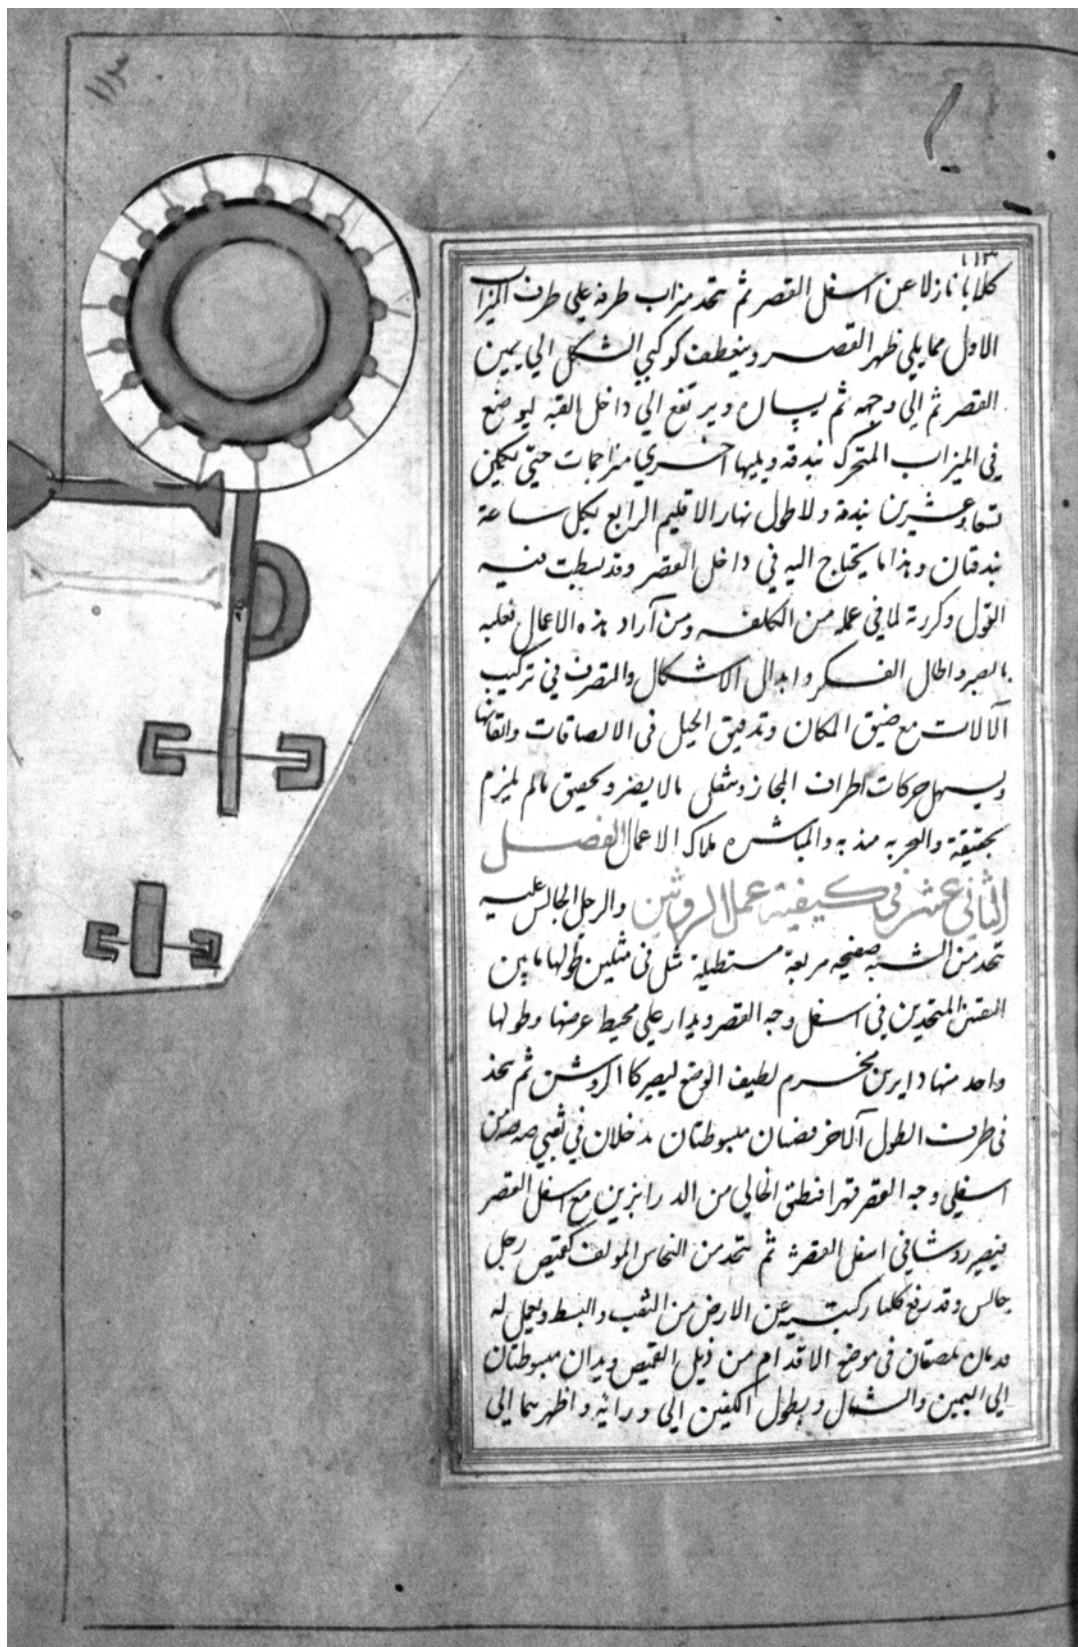 ١١٣
١١٣
كلابا نازلا عن اسفل القصر ثم يتخذ ميزاب طرفه علي طرف الميزاب
الاول مما يلي ظهر القصر وينعطف كوكبي الشكل الي يمين
القصر ثم الي وجهه ثم يساره ويرتفع الي داخل القبه ليوضع
في الميزاب المتحرك بندقه ويليها اخري مزاحمات حتي يكمن
تسعا وعشرين بندقة ولاطول نهار الاقليم الرابع لكل ساعة
بندقتان وهذا ما يحتاج اليه في داخل القصر وقد بسطت فيه
القول وكررته لما في عمله من الكلفه ومن آراد هذه الاعمال فعليه
بالصبر واطال الفكر وابدال الاشكال والتصرف في تركيب
آلالات مع ضيق المكان وتدقيق الحيل في الالصاقات واتقانها
ويسهل حركات اطراف المجاز وشغلي مالا يضر وتحقيق مالم يلزم
بحقيقة والتجربه مندبه والمباشره ملاك الاعمال الفصل
الثاني عشر في كيفية عمل الروشن والرجل الجالس عليه
يتخذ من الشبه صفيحه مربعة مستطيلة مثل في مثلين طولها ما بين
النقبين المتخذين في اسفل وجه القصر ويدار علي محيط عرضها وطولها
واحد منها دابرين مخرم لطيف الوضع ليصير كالروشن ثم يتخذ
في طرف الطول آلاخر مضبان مبسوطتان يدخلان في ثقبي من
اسفلي وجه القصر قهرا فنطق الخالي من الدرابزين مع اسفل القصر
فيصير روشنا في اسفل القصر ثم يتخذ من النحاس المولف كقميص رجل
جالس وقد رفع كلتا ركبتيه عن الارض من الثقب والبسط ويعمل له
قدمان تلصقان في موضع الاقدام من ذيل القميص ويدان مبسوطتان
الي اليمين والشمال وبطول الكفين الي ورائه واظهرهما الي